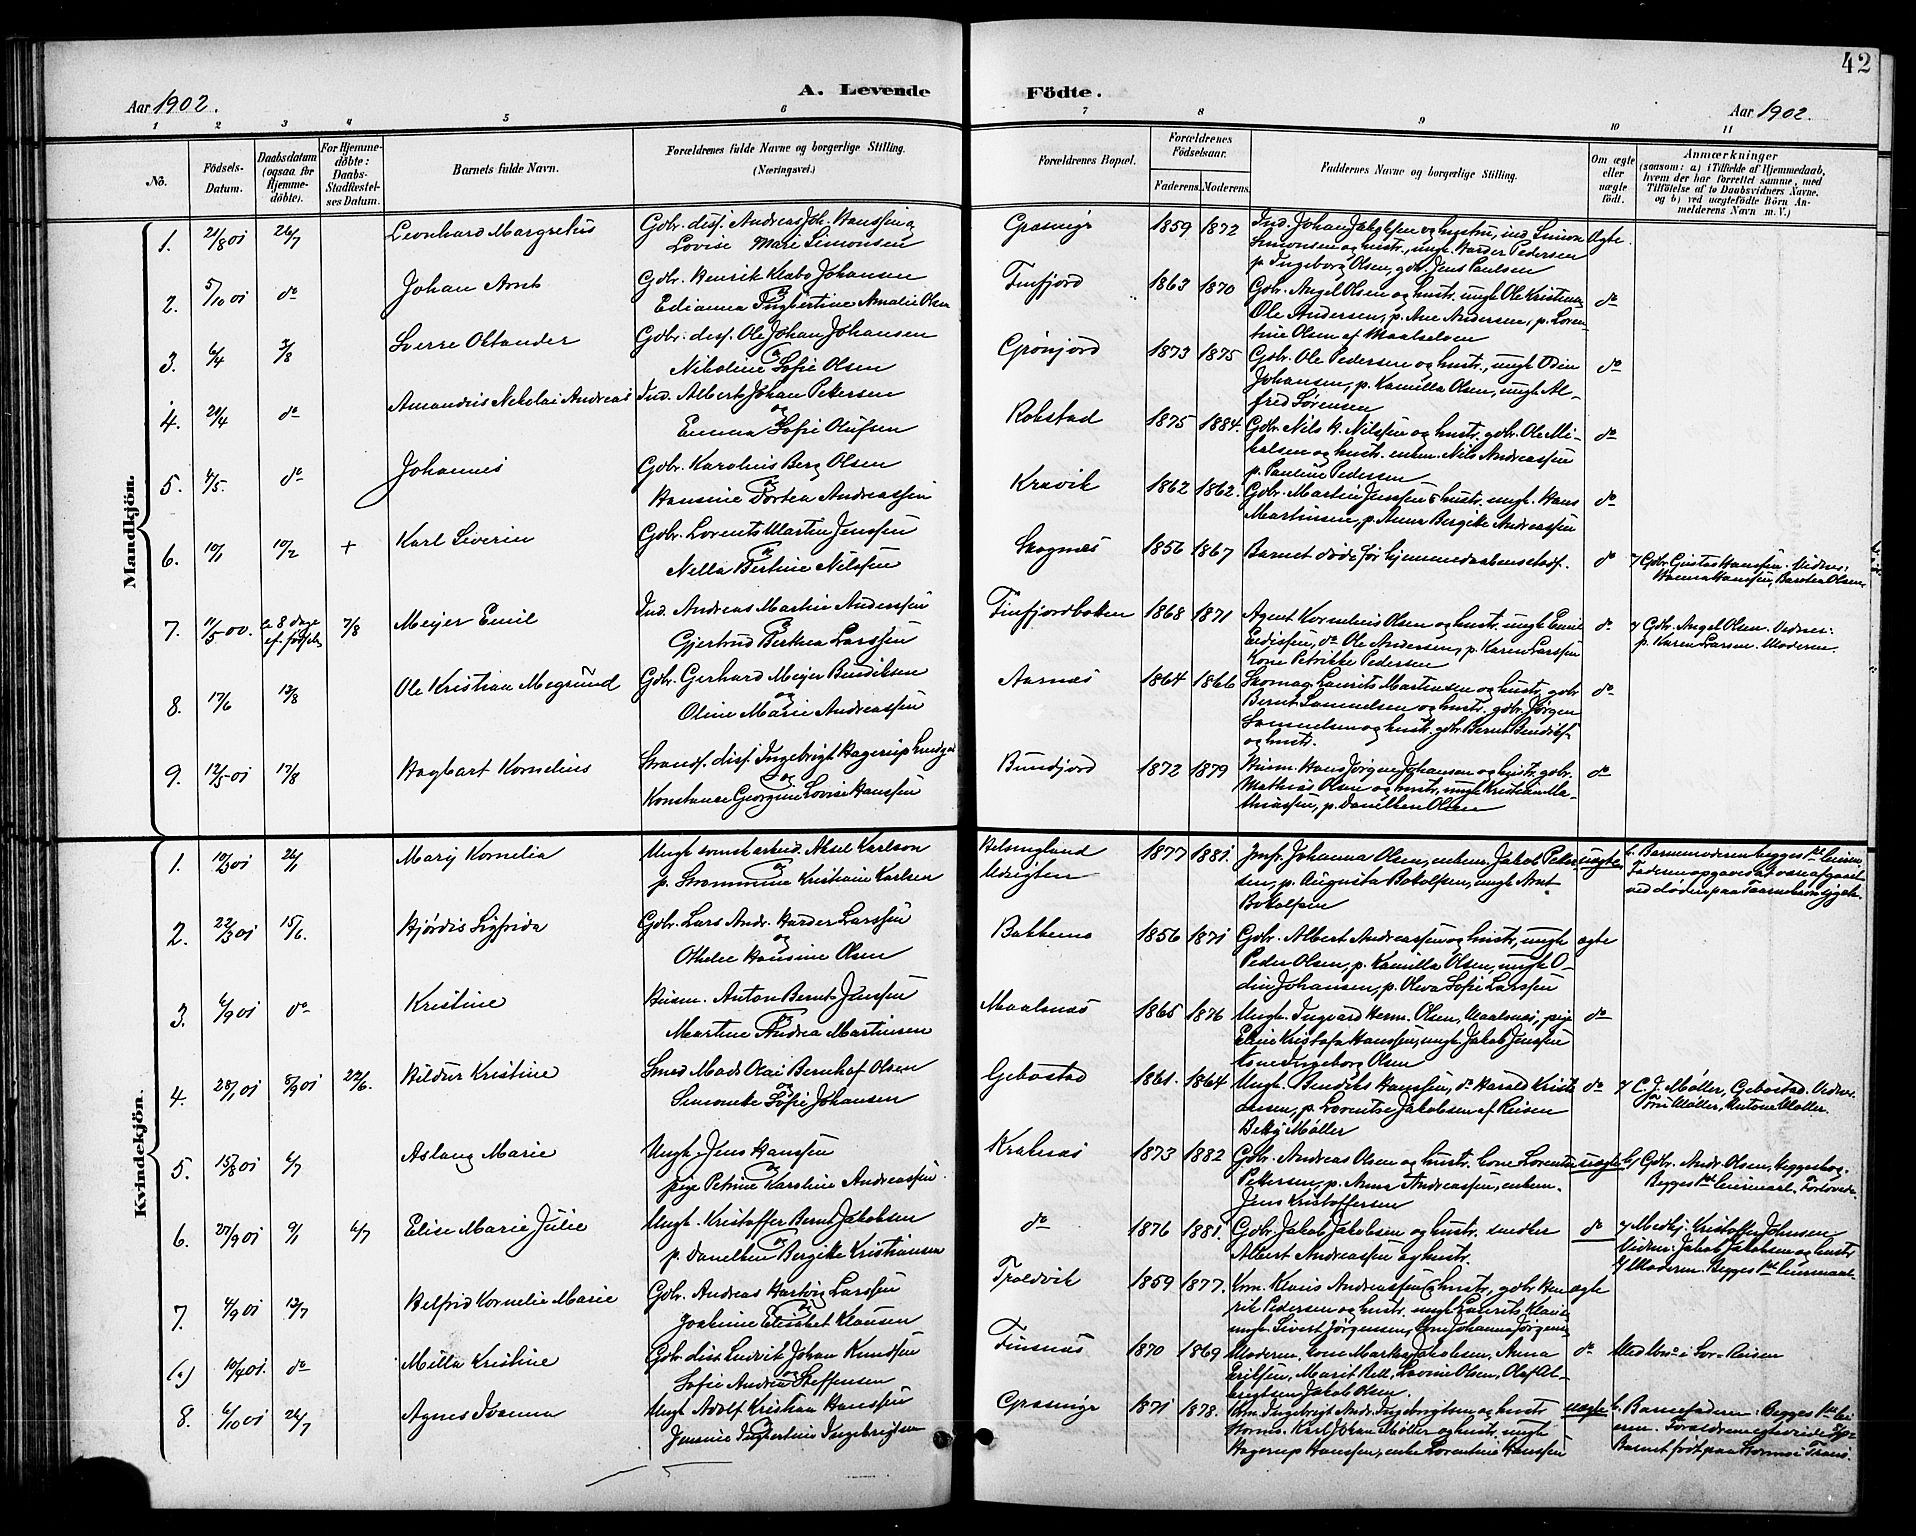 42
Aar 1902.
A. Levende Födte.
Aar 1902.
1 2 3 4 5 6 7 8 9 10 11
No.
Födsels-
Datum.
Daabsdatum
(ogsaa for
Hjemme-
döbte).
For Hjemme-
döbte:
Daabs-
Stadfæstel-
ses Datum.
Barnets fulde Navn.
Forældrenes fulde Navne og borgerlige Stilling.
(Næringsvei.)
Forældrenes Bopæl.
Forældrenes
Födselsaar.
Faderens. Moderens.
Faddernes Navne og borgerlige Stilling.
Om ægte
eller
uægte
födt.
Anmærkninger
(saasom: a) i Tilfælde af Hjemmedaab,
hvem der har forrettet samme, med
Tilföielse af to Daabsvidners Navne,
og b) ved uægtefödte Börn An-
melderens Navn m. V.)
Mandkjön.
1. 21/8 01 26/7 Leonhard Margrethus Gdbr. disp. Andreas Joh. Hanssen og
Lovise Marie Simonsen
Grasmyr 1859 1872 Ind. Johan Jakobsen og hustru, ind. Simon
Simonsen og hustr., ungk. Harder Pedersen
p. Ingeborg Olsen, gdbr. Jens Paulsen
Ægte.
2. 5/10 01 do Johan Arnt Gdbr. Henrik Klabo Johansen
og
Edianna Ingbertine Amalie Olsen
Finfjord 1863 1870 Gdbr. Angel Olsen og hustr. ungk. Ole Kristian
Ole Andersen, p. Ane Andersen, p. Loren-
tine Olsen af Maalselven
do
3. 6/4 3/8 Sverre Oktander Gdbr. disp. Ole Johan Johansen
og
Nikoline Sofie Olsen
Grønjord 1873 1875 Gdbr. Ole Pedersen og hustr., ungk. Odin
Johansen, p. Kamilla Olsen, ungk. Al-
fred Sørensen
do
4. 21/4 do Amandus Nikolai Andreas Ind. Albert Johan Pettersen
og
Emma Sofie Olufsen
Robstad 1875 1884. Gdbr. Nils H. Nilssen og hustr. gdbr. Ole Mi-
kalsen og hustr. enkem. Nils Andreassen
p. Pauline Pedersen
do
5. 4/5. do Johannes Gdbr. Karolius Berg Olsen
og
Hansine Dortea Andreassen
Kravik 1862 1862. Gdbr. Martin Jenssen & hustr. ungk. Hans
Martinsen, p. Anna Bergite Andreassen
do
6. 10/1 10/2 + Karl Severin Gdbr. Lorents Martin Jenssen
og
Nella Bertine Nilssen
Skognes 1856 1867 Barnet døde før hjemmedaabens stadf. do
Gdbr. Gustav Hanssen. Vidner:
Hanna Hanssen, Olsen
7. 11/5 00. ca 8 dage
ef. fødsel
7/8 Meyer Emil Ind. Andreas Martin Anderssen
og
Gjertrud Berthea Larssen
Finfjordbotten 1868 1871 Agent Kornelius Olsen og hustr. ungk. Emil
do Ole Andersen, p. Karen Larssen
Kone Petrikke Pedersen
do
Gdbr. Angel Olsen. Vidner:
p. Karen Larsen. Moderen.
8. 17/6 13/8 Ole Kristian Megrund Gdbr. Gerhard Meyer Bendiksen
og
Oline Marie Andreassen
Aarnes 1864 1866 Skomag. Laurits Martinsen og hustr. gdbr
Bernt Samuelsen og hustr. gdbr. Jørgen
Samuelsen og hustr. gdbr. Bernt Bendiks.
og hustr.
do
9. 12/5 01 17/8 Hagbart Kornelius Strands. disp. Ingebrigt Hagerup
og
Konstanse Georgine Lovise Hanssen
Bundjord 1872 1879 Husm. Hans Jørgen Johansen og hustr. gdbr.
Mathias Olsen og hustr., ungk. Kristian Ma-
thiassen, p. Danelken Olsen
do
Kvindekjön.
1. 10/3 01 26/1 Mary Kornelia Ungk. kunstarbeid. Aksel Karlson
og
p. Strømmine Kristiane Karlsen
Helsingland
1877 1881. Jmfr. Johanna Olsen, enkem. Jakob Peder-
sen, p. Augusta Bokolfsen, ungk. Arnt
Bokolfsen
uægte
b. Barnemoderen begges 1ste leierm.
2. 22/3 01 15/6. Hjørdis Sigfrida Gdbr. Lars Andr. Harder Larssen
og
Othelie Hansine Olsen
Bakkemo 1856 1871 Gdbr. Albert Andreassen og hustr., ungk.
Peder Olsen, p. Kamilla Olsen, ungk. O-
din Johansen, p. Olva Sofie Larssen
ægte
3. 6/9 01 do Kristine Husm. Anton Bernt Jenssen
og
Martine Andrea Martinsen
Maalsnes 1865 1876 Ungk. Ingvard Herm. Olsen, Maalsnes, pige
Eline Kristofa Hanssen, ungk. Jakob Jenssen
Kone Ingeborg Olsen
do
4. 28/1 01 8/9 01 22/6. Hildur Kristine Smed Mads Olai Bernhof Olsen
og
Simonette Sofie Johansen
Gebostad 1861. 1864 Ungk. Bendiks Hanssen, do Harald Kristi-
ansen, p. Lorentse Jakobsen af Reisen
Betty Møller
do
C. J. Møller, Gebostad. Vidner
Toni Møller, Antone Møller.
5. 15/8 01 6/7 Aslaug Marie Ungk. Jens Hanssen
og
pige Petrine Karoline Andreassen
Kraknes 1873 1882 Gdbr. Andreas Olsen og hustr. kone Lorentse
Pettersen, p. Anna Andreassen, enkem.
Jens Kristoffersen
uægte
b/ Gdbr. Andr. Olsen,
Begges 1ste leiermaal. Forlovede
6. 27/9 01 9/1 6/7 Elise Marie Julie Ungk. Kristoffer Bernt Jakobsen
og
p. Danelken Bergitte Kristiansen
do 1876 1881. Gdbr. Jakob Jakobsen og hustr. snedker
Albert Andreassen og hustr.
do
Medhj. Kristoffer Johnsen
Vidner: Jakob Jakobsen og hustr
b/ Moderen. Begges 1ste leiermaal.
7. 4/9 01 13/7 Helfrid Kornelie Marie Gdbr. Andreas Hartvig Larssen
og
Joakime Elisabet Klausen
Troldvik 1859 1877. Krm. Klaus Andreassen & hustr., gdbr. Hen
rik Pedersen og hustr. ungk. Laurits Klaus.
ungk. Sivert Jørgensen, kone Johanna Jørgens.
ægte
(a) 10/4 01. do Milla Kristine Gdbr. diss. Ludvik Johan Knudsen
og
Sofie Andrea Steffensen
Finsnes 1870 1869 Moderen, kone Martha Jakobsen, Anna
Eriksen, Marit Kell, Lovine Olsen, Olaf Al-
brigtsen Jakob Olsen.
do
8. 6/10 01 26/7 Agnes Ivanna Ungk. Adolf Kristian Hanssen
og
Jensine Ingbertine Ingebrigtsen
Grasmyr 1871 1878. Krm. Ingebrigt Andr. Ingebrigtsen og hustr.
Karl Johan Møller og hustr. ungk.
Hagerup Hanssen, enke Lorentine Hanssen
uægte
b. Barnefaderen. Begges 1ste lei-
erm. Forældrene
Barnet født paa i Trans.